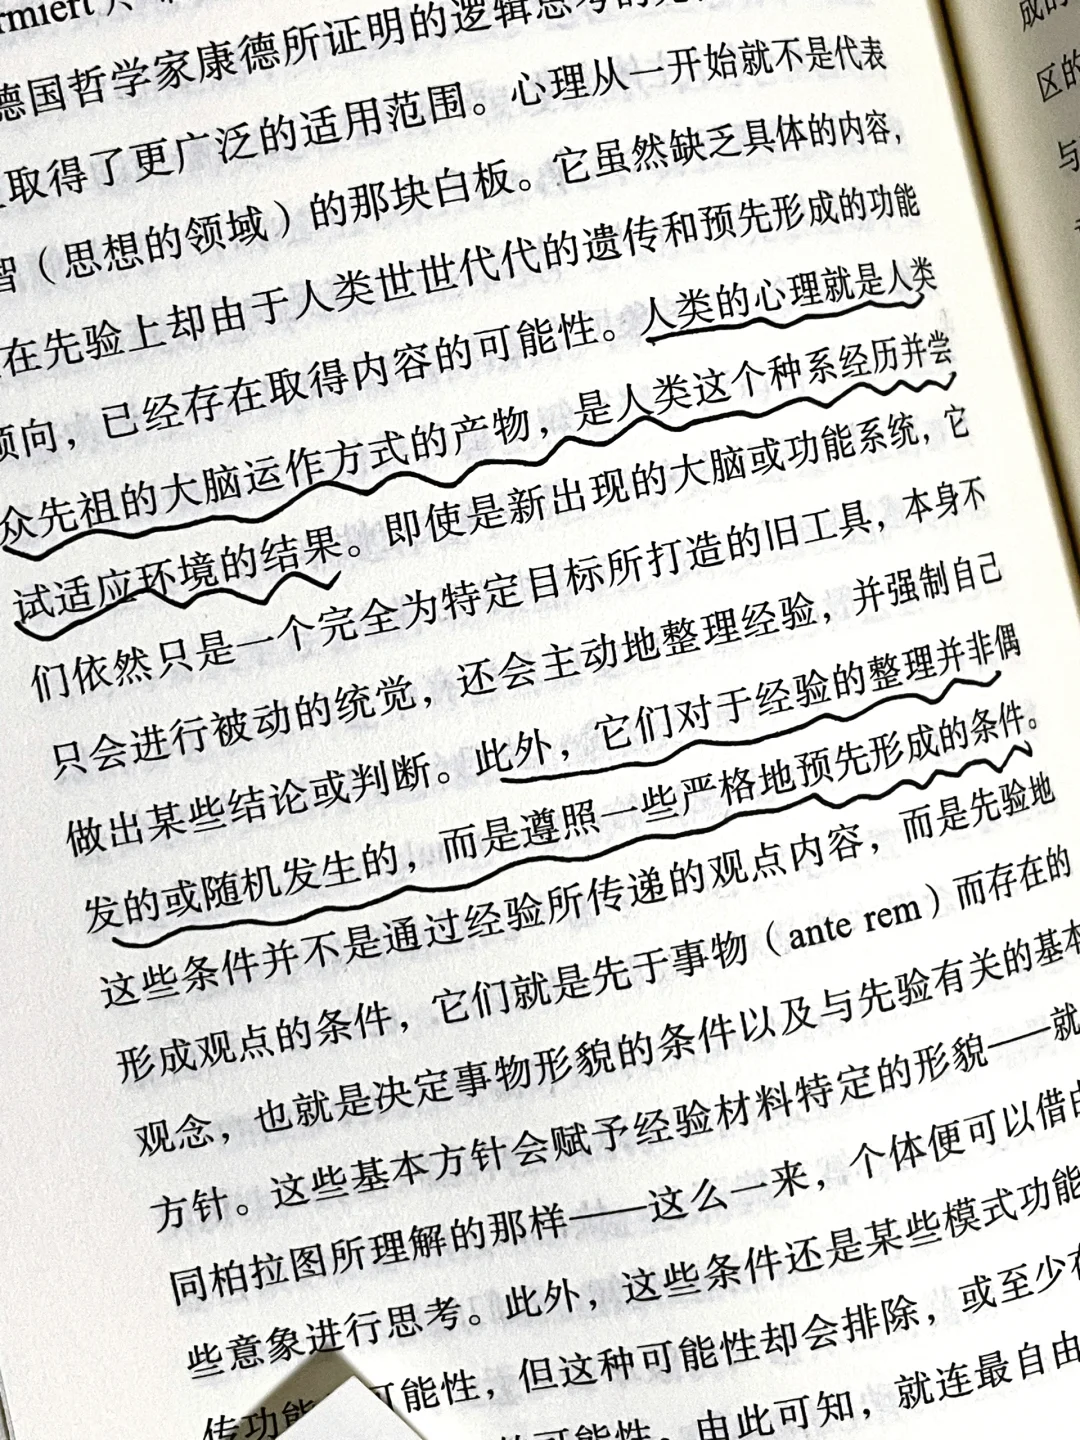 rmiert
德国哲学家康德所证明的逻辑思考的
取得了更广泛的适用范围。心理从一开始就不是代表
智（思想的领域）的那块白板。它虽然缺乏具体的内容，
在先验上却由于人类世世代代的遗传和预先形成的功能
倾向，已经存在取得内容的可能性。人类的心理就是人类
众先祖的大脑运作方式的产物，是人类这个种系经历并尝
试适应环境的结果。即使是新出现的大脑或功能系统，它
们依然只是一个完全为特定目标所打造的旧工具，本身不
只会进行被动的统觉，还会主动地整理经验，并强制自己
做出某些结论或判断。此外，它们对于经验的整理并非偶
发的或随机发生的，而是遵照一些严格地预先形成的条件。
这些条件并不是通过经验所传递的观点内容，而是先验地
形成观点的条件，它们就是先于事物（ante rem）而存在的
观念，也就是决定事物形貌的条件以及与先验有关的基本
方针。这些基本方针会赋予经验材料特定的形貌——就
同柏拉图所理解的那样——这么一来，个体便可以借由
些意象进行思考。此外，这些条件还是某些模式功能
传功能 可能性，但这种可能性却会排除，或至少在
的可能性。由此可知，就连最自由
成的
区的
与